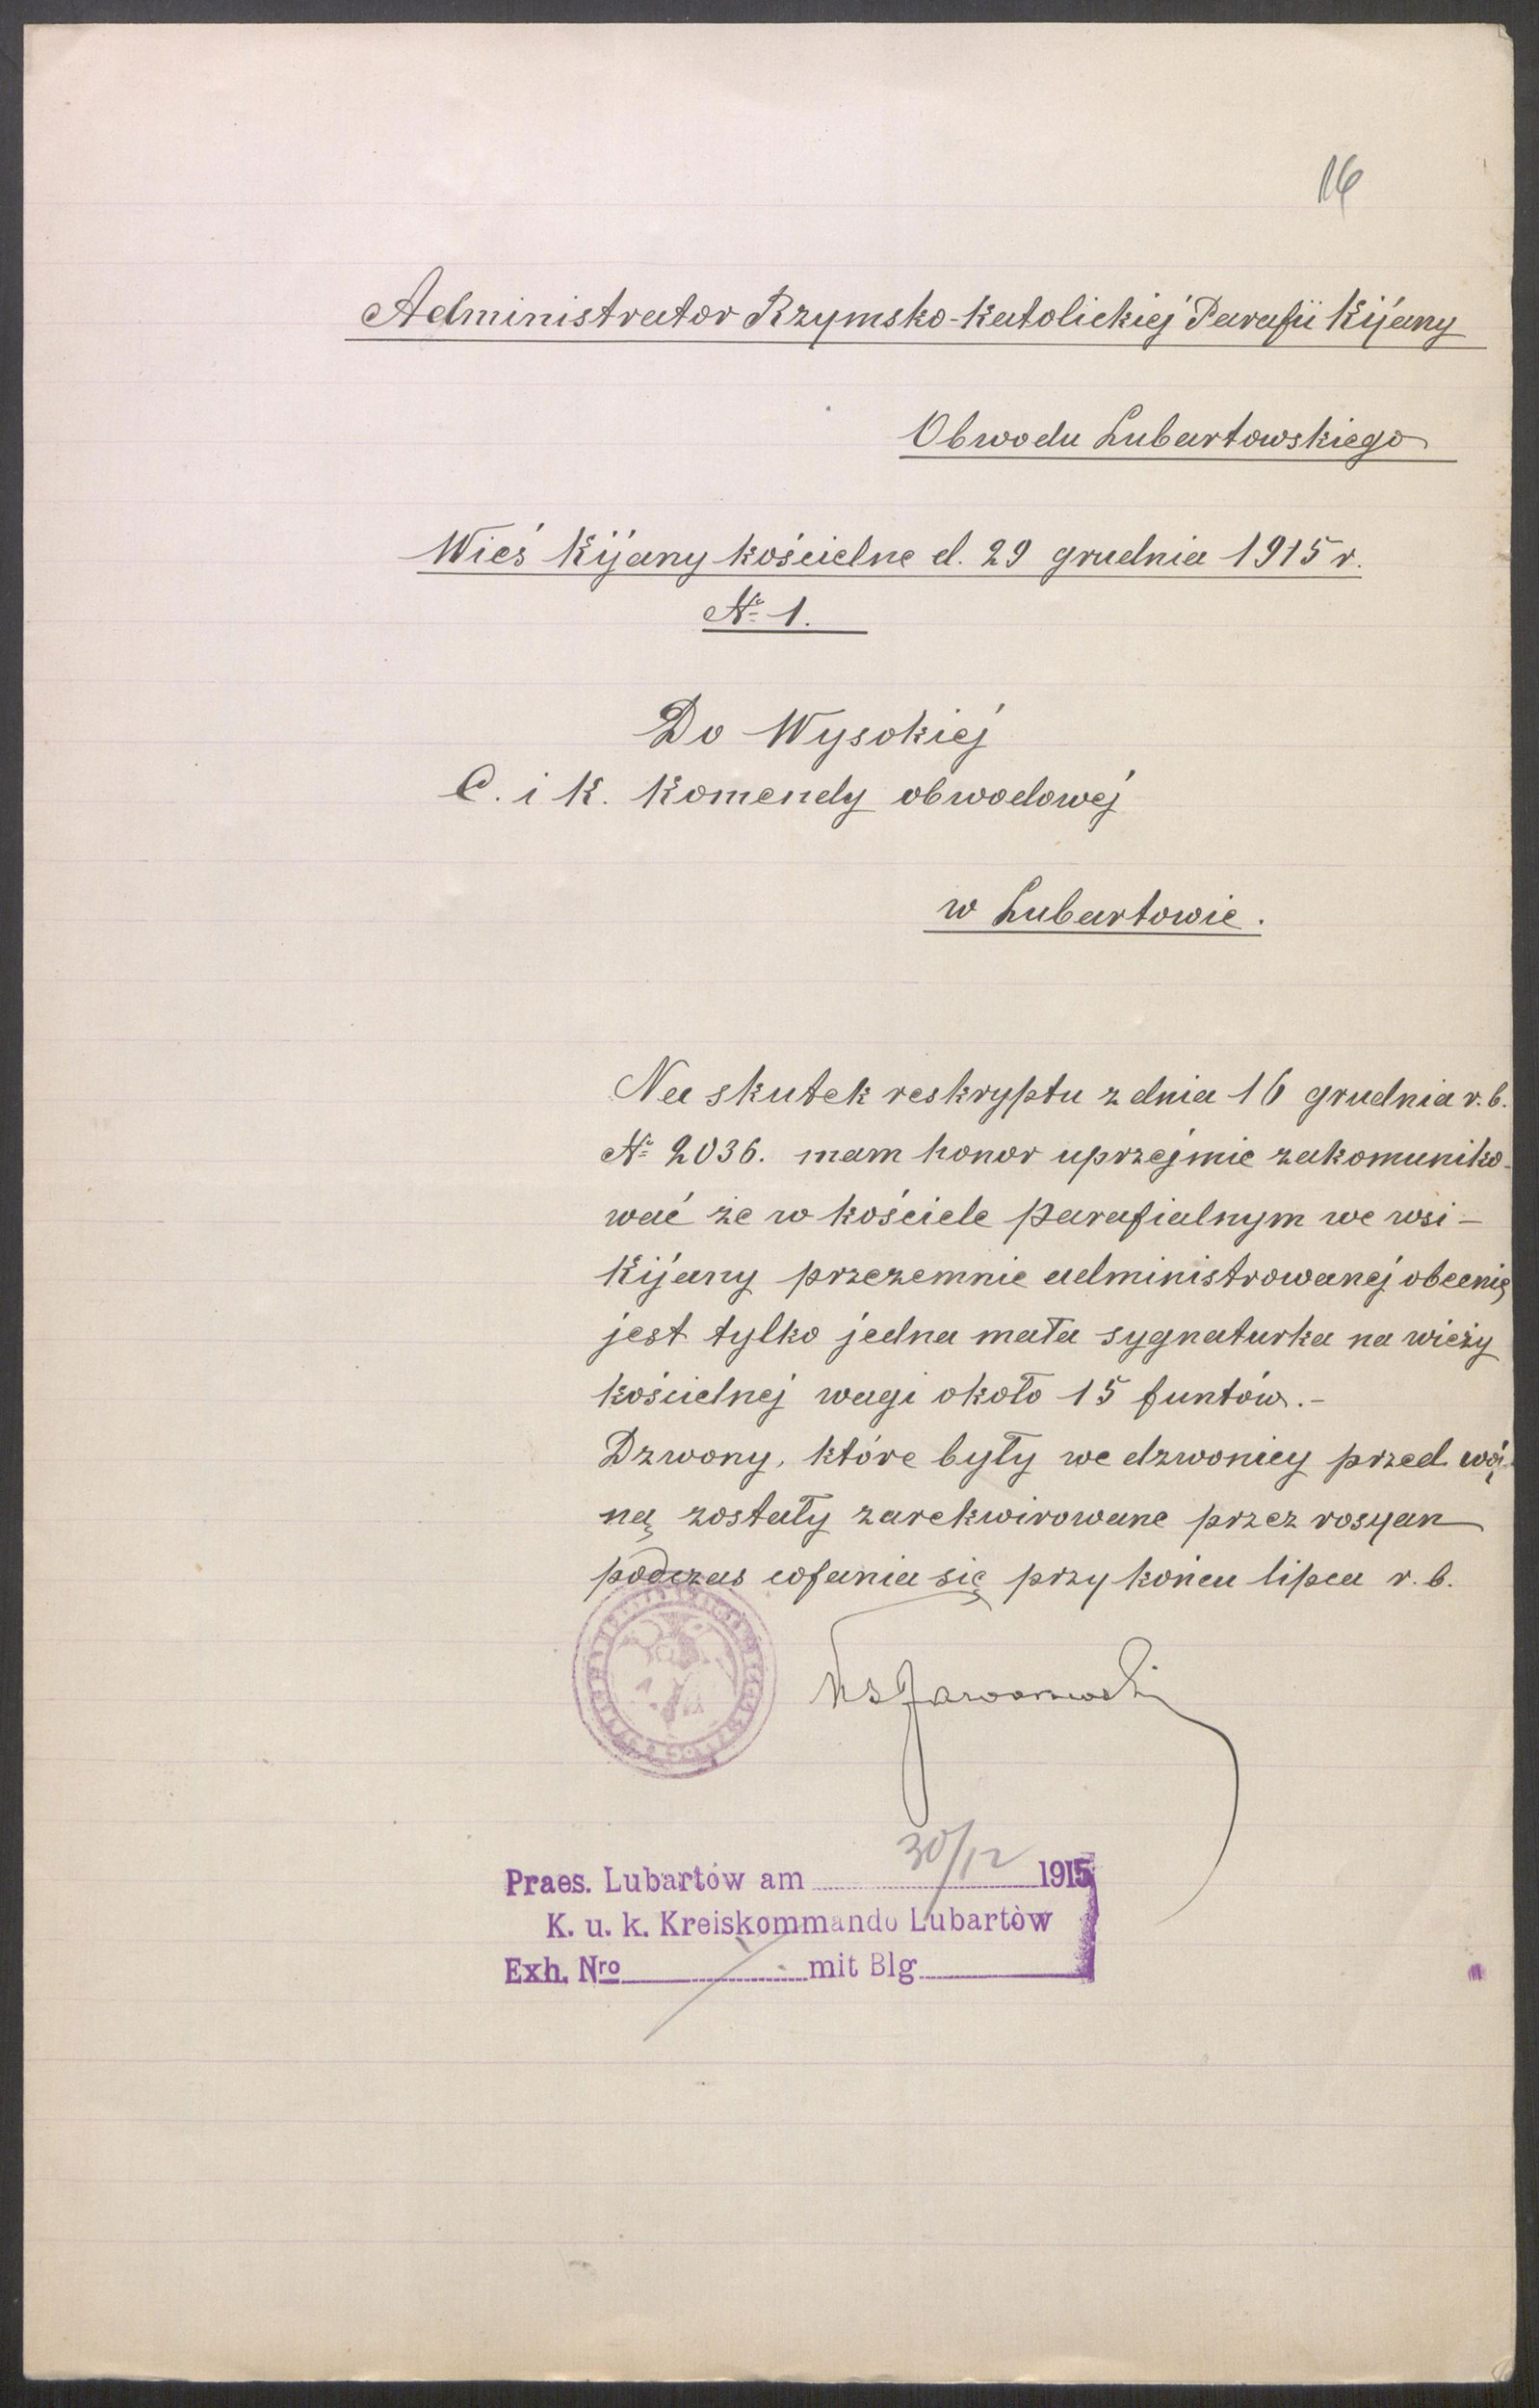 16
Administrator Rzymsko-Katolickiej Parafii Kijany
Obwodu Lubartowskiego
Wieś Kijany kościelne d. 29 grudnia 1915 r.
№ 1.
Do Wysokiej
C. i K. Komendy obwodowej
w Lubartowie.
Na skutek reskryptu z dnia 16 grudnia r. b.
№ 2036. mam honor uprzejmie zakomuniko-
wać że w kościele parafialnym we wsi -
Kijany przezemnie administrowanej obecnie
jest tylko jedna mała sygnaturka na wieży
kościelnej wagi około 15 funtów. -
Dzwony, które były we dzwonicy przed woj-
ną zostały zarekwirowane przez rosyan
podczas cofania się przy końcu lipca r. b.
Ks
30/12
Praes. Lubartów am 1915
K. u. k. Kreiskommando Lubartów
Exh. Nro mit Blg